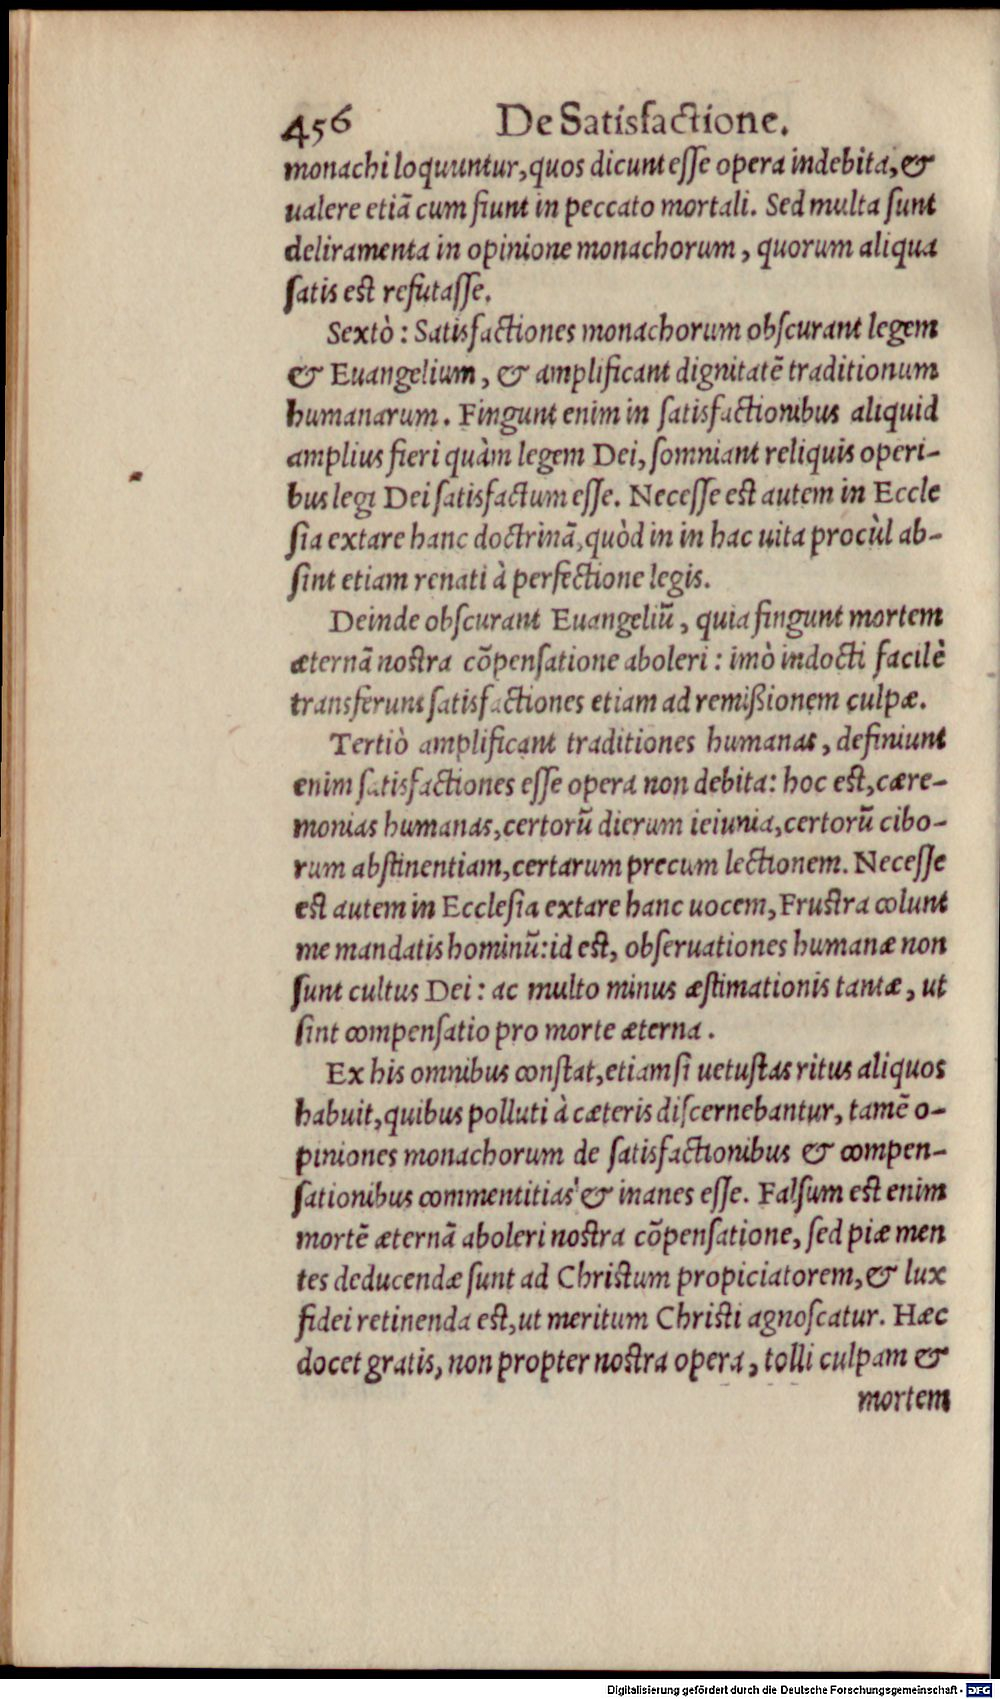 456 De Satisfactione.
monachi loquuntur, quos dicunt esse opera indebita, &
ualere etiã cum fiunt in peccato mortali. Sed multa sunt
deliramenta in opinione monachorum, quorum aliqua
satis est refutasse.
Sextò: Satisfactiones monachorum obscurant legem
& Euangelium, & amplificant dignitatẽ traditionum
humanarum. Fingunt enim in satisfactionibus aliquid
amplius fieri quàm legem Dei, somniant reliquis operi-
bus legi Dei satisfactum esse. Necesse est autem in Eccle
sia extare hanc doctrinã, quòd in in hac uita procùl ab-
sint etiam renati à perfectione legis.
Deinde obscurant Euangeliũ, quia fingunt mortem
æternã nostra cõpensatione aboleri: imò indocti facilè
transferunt satisfactiones etiam ad remißionem culpæ.
Tertiò amplificant traditiones humanas, definiunt
enim satisfactiones esse opera non debita: hoc est, cære-
monias humanas, certorũ dierum ieiunia, certorũ cibo-
rum abstinentiam, certarum precum lectionem. Necesse
est autem in Ecclesia extare hanc uocem, Frustra colunt
me mandatis hominũ: id est, obseruationes humanæ non
sunt cultus Dei: ac multo minus æstimationis tantæ, ut
sint compensatio pro morte æterna.
Ex his omnibus constat, etiamsi uetustas ritus aliquos
habuit, quibus polluti à cæteris discernebantur, tamẽ o-
piniones monachorum de satisfactionibus & compen-
sationibus commentitias & inanes esse. Falsum est enim
mortẽ æternã aboleri nostra cõpensatione, sed piæ men
tes deducendæ sunt ad Christum propiciatorem, & lux
fidei retinenda est, ut meritum Christi agnoscatur. Hæc
docet gratis, non propter nostra opera, tolli culpam &
mortem
Digitalisierung gefördert durch die Deutsche Forschungsgemeinschaft - DFG